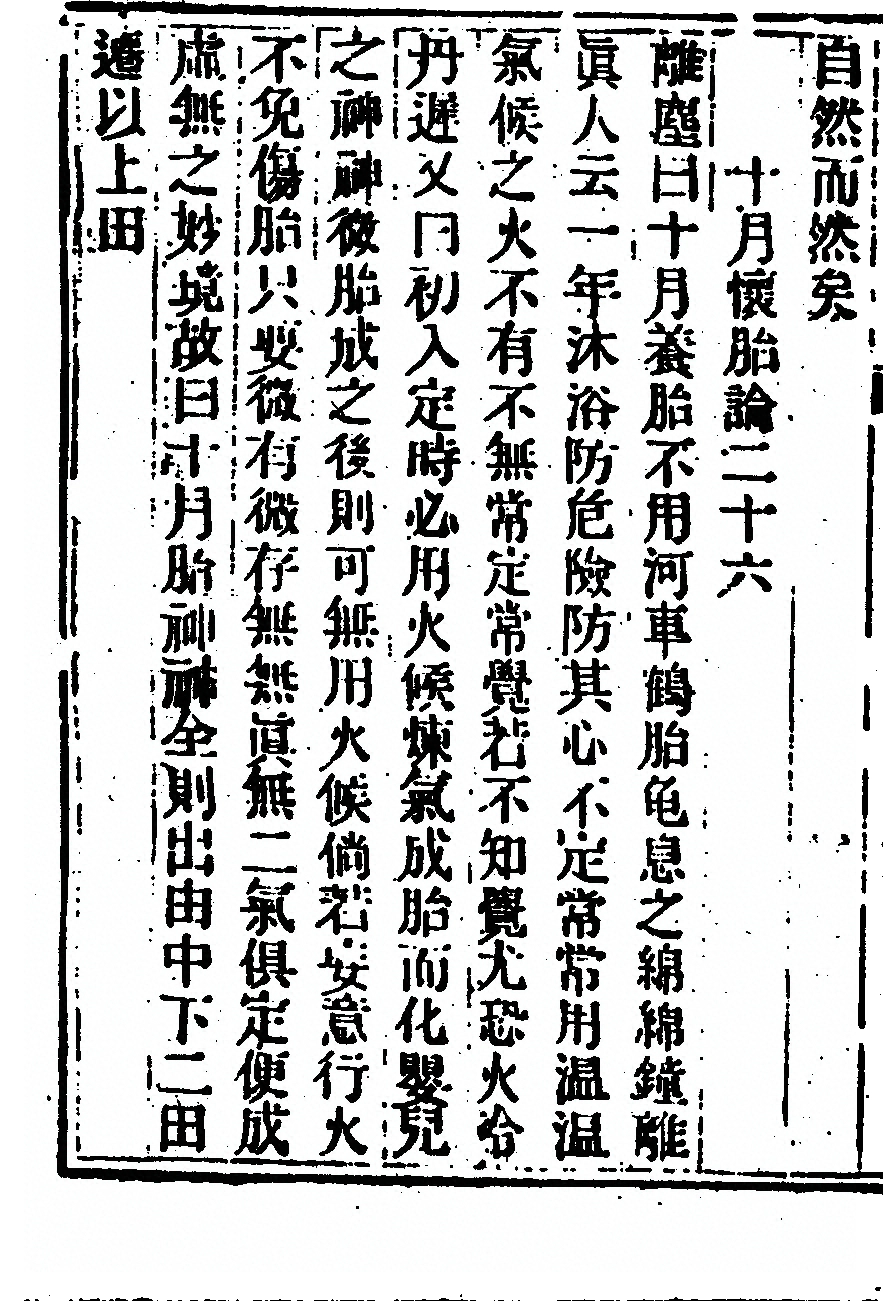 自然而然矣
十月懷胎論二十六
離塵曰十月養胎不用河車鶴胎龟息之綿綿鐘離
眞人云一年沐浴防危險防其心不定常常用温温
氣候之火不有不無常定常覺若不知覺尤恐火冷
丹遲又曰初入定時必用火候煉氣成胎而化嬰兒
之神神微胎成之後則可無用火候倘若妄意行火
不免傷胎只要微有微存無無眞無二氣俱定便成
虛無之妙境故曰十月胎神神全則出由中下二田
遷以上田